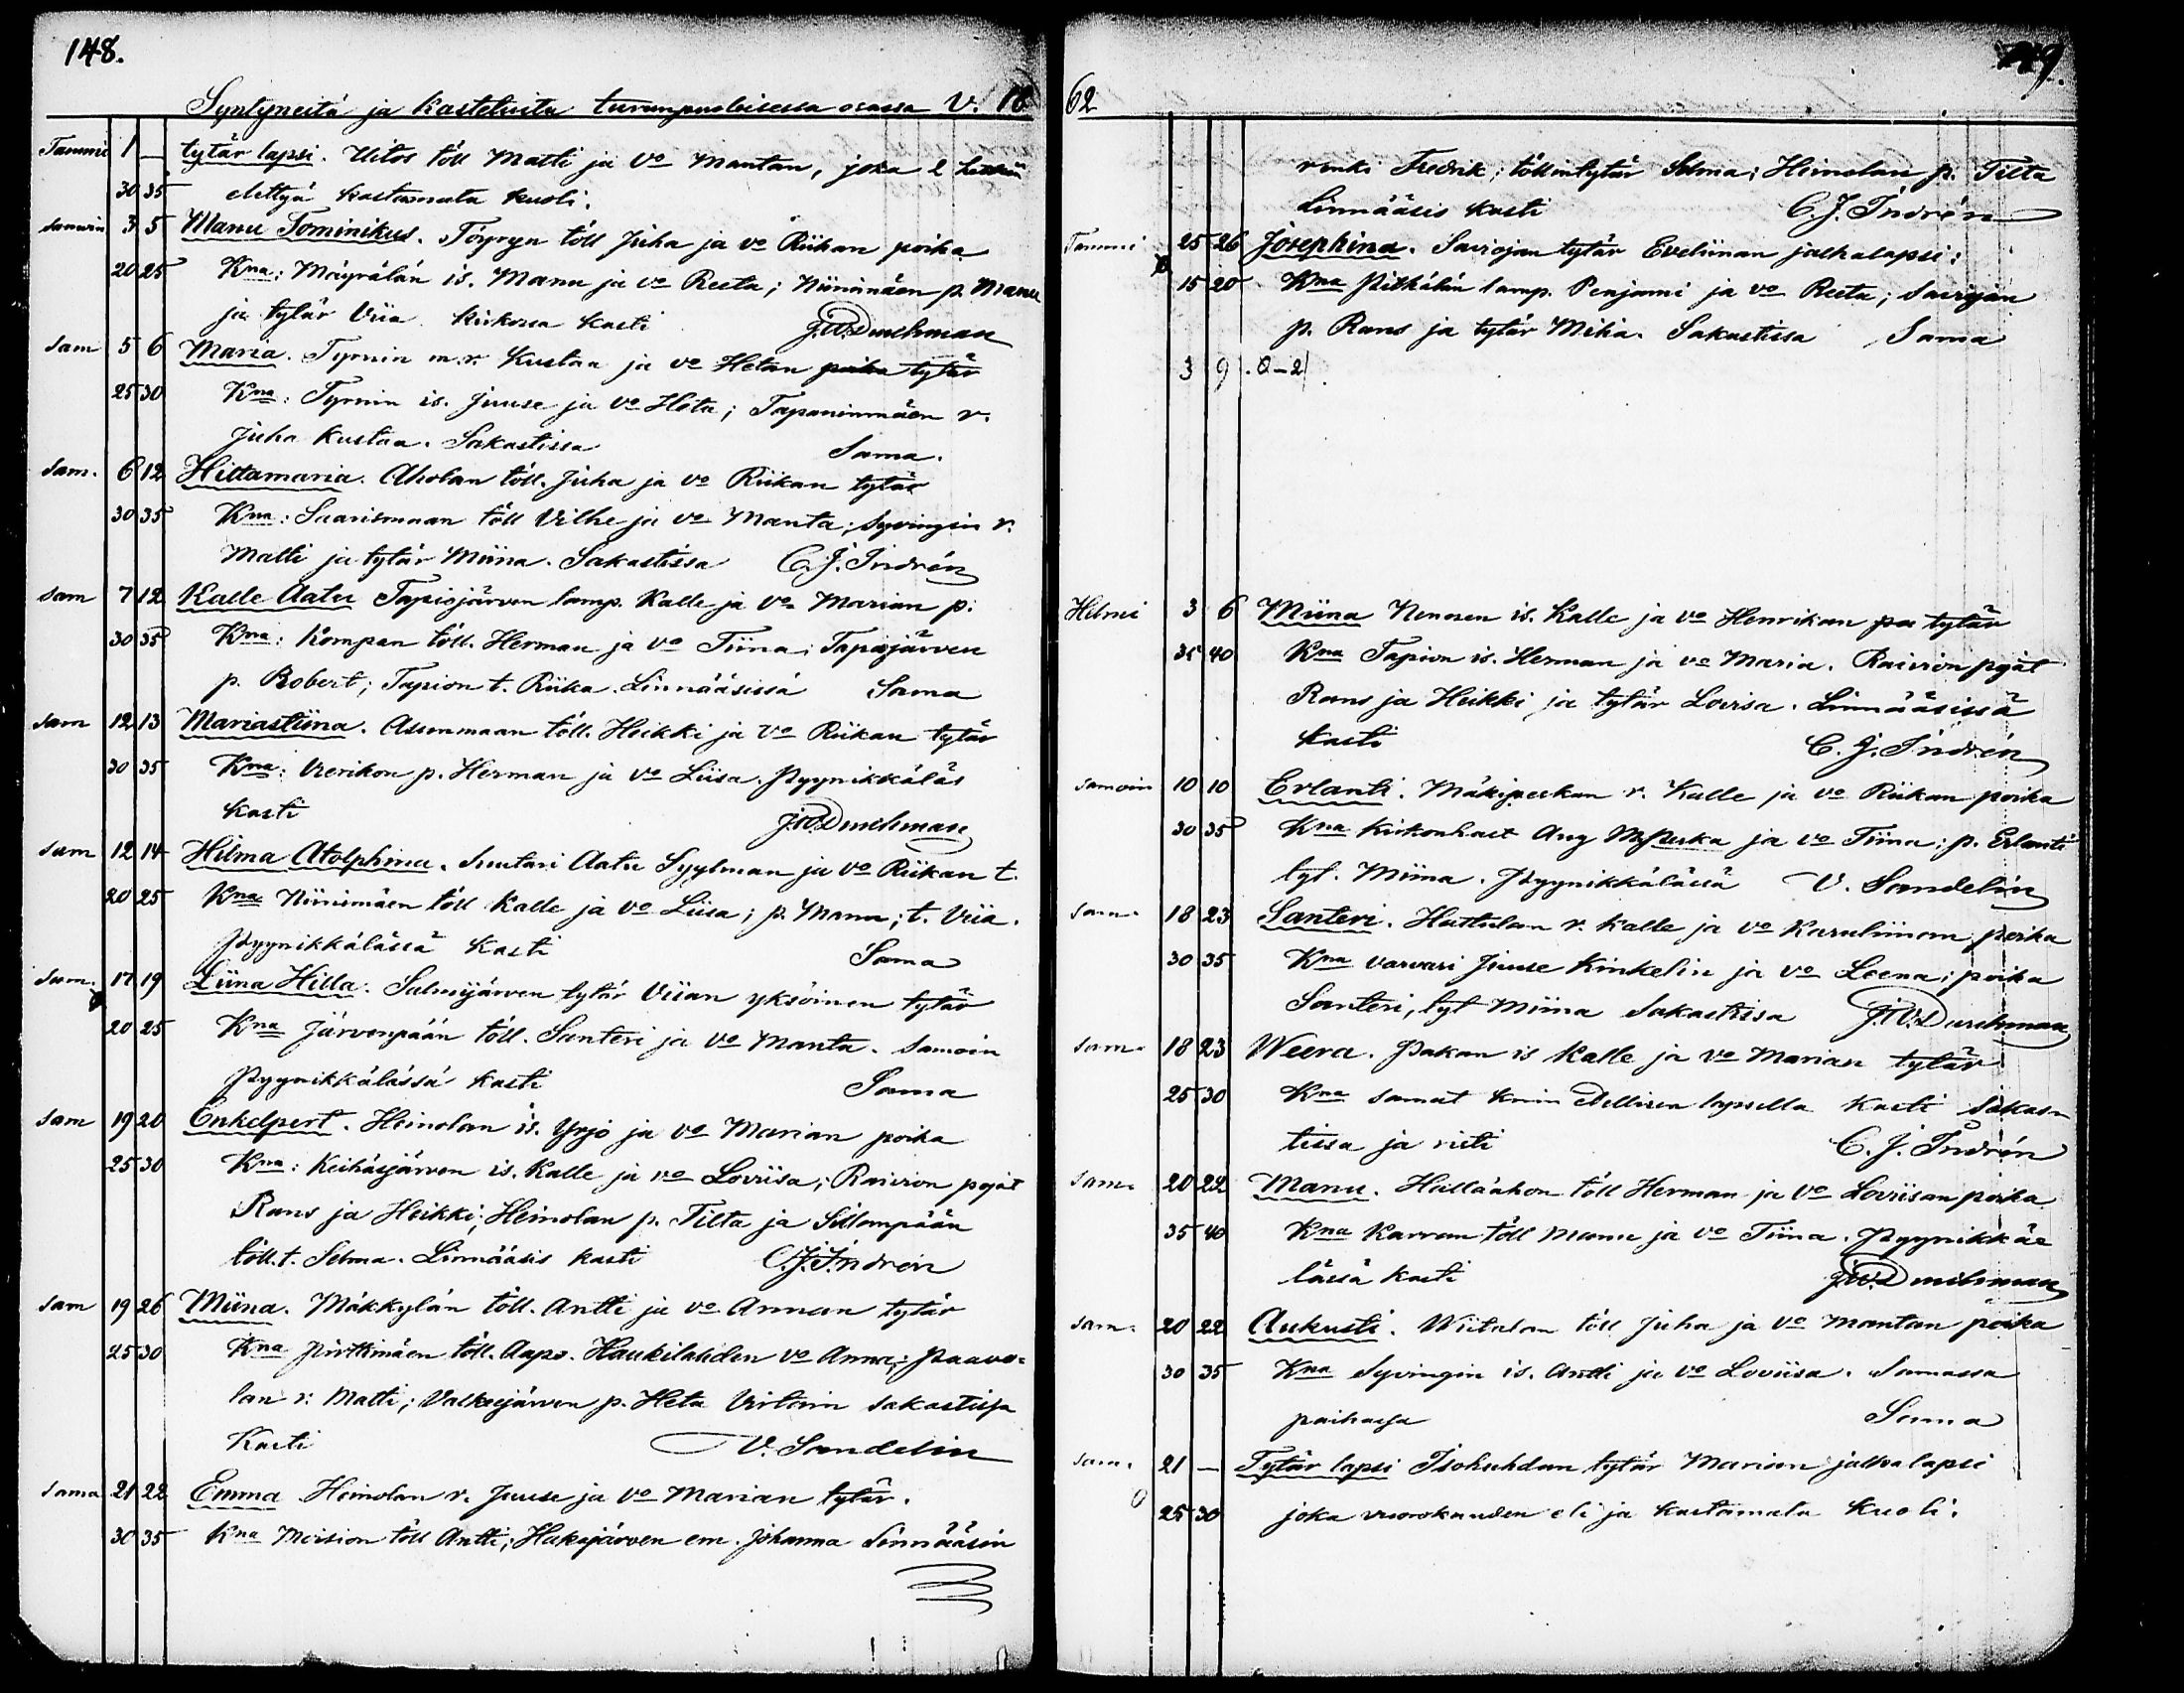 148.
Syntyneitä ja Kastetuita turunpuoleisessa osassa V. 18
Tammi 1 — tytär lapsi. Uitos töll Matti ja vo Mantan, joka 2
30 35 elettyä kastamata kuoli.
samoin 3 5 Manu Tominikus. Töyryn töll Juha ja vo Riikan poika
20 25 Kna: Mäyrälän is. Manu ja vo Reeta; Niinimäen p. Manu
ja tytär Viia kirkossa kasti
sam 5 6 Maria. Tyrnin m.v. Kustaa ja vo Hetan poika tytär
25 30 Kna: Tyrnin is. Juuse ja vo Heta; Tapaninmäen r.
Juha Kustaa. Sakastissa Sama.
sam. 6 12 Hittamaria. Aholan töll. Juha ja vo Riikan tytär
30 35 Kna: Saarismaan töll Vilhe ja vo Manta; Syvingin r.
Matti ja tytär Miina. Sakastissa C. J. Indrén
sam 7 12 Kalle Aatu Tapiojärven lamp. Kalle ja vo Marian p.
30 35 Kna: Kompan töll. Herman ja vo Tiina; Tapiojärven
p. Robert; Tapion t. Riika. Linnääsissä Sama
sam 12 13 Mariastiina. Assenmaan töll. Heikki ja vo Riikan tytär
30 35 Kna: Vierikon p. Herman ja vo Liisa. Pyynikkäläs
kasti
sam 12 14 Hilma Atolphina. Suutari Aatu Syylman ja vo Riikan t.
20 25 Kna Niinimäen töll Kalle ja vo Liisa; p. Manu; t. Viia.
Pyynikkälässä kasti Sama
sam. 17 19 Liina Hilla. Salmijärven tytär Viian yksöinen tytär
20 25 Kna Järvenpään töll. Santeri ja vo Manta. Samoin
Pyynikkälässä kasti Sama
sam 19 20 Enkelpert. Heinolan is. Yrjö ja vo Marian poika
25 30 Kna: Keihäsjärven is. Kalle ja vo Loviisa; Raivion pojat
Rans ja Heikki; Heinolan p. Tilta ja Sillanpään
töll. t. Selma. Linnääsis kasti C. J. Indrén
sam 19 26 Miina. Mäkkylän töll. Antti ja vo Annan tytär
25 30 Kna Pirttimäen töll. Aapo. Haukilahden vo Anna; Paavo-
lan r. Matti; Valkejärven p. Heta Virtain sakastissa
Kasti V. Sandelin
sama 21 22 Emma Heinolan r. Juuse ja vo Marian tytär.
30 35 Kna Moision töll Antti; Hakojärven em. Johanna Linnääsin
62
149.
renki Fredrik; töllintytär Selma; Heinolan p. Tilta
Linnääsis kasti C. J. Indrén
Tammi 25 26 Josephina. Saviojan tytär Eveliinan jalkalapsi:
15 20 Kna Pitkälän lamp. Penjami ja vo Reeta; Saviojan
p. Rans ja tytär Miina. Sakastissa Sama
3 9 . 0-2
Helmi 3 6 Miina Nenosen is. Kalle ja vo Henrikan po tytär
35 40 Kna Tapion is. Herman ja vo Maria. Raivion pojat
Rans ja Heikki ja tytär Lovisa. Linnääsissä
kasti C. J. Indrén
samoin 10 10 Erlanti. Mäkipeskan r. Kalle ja vo Riikan poika
30 35 Kna kirkonhaet Aug ja vo Tiina; p. Erlanti
tyt. Miina. Pyynikkälässä V. Sandelin
sam. 18 23 Santeri. Huttulan r. Kalle ja vo Karuliinan poika
30 35 Kna varvari Juuse Kinkelin ja vo Leena; poika
Santeri, tyt Miina Sakastissa
sam. 18 23 Weera. Pakan is Kalle ja vo Marian tytär
25 30 Kna samat kuin edellisen lapsella kasti sakas-
tissa ja risti C. J. Indrén
sam. 20 22 Manu. Hallaahon töll Herman ja vo Loviisan poika
35 40 Kna Karvan töll Manu ja vo Tiina. Pyynikkä-
lässä kasti
sam. 20 22 Aukusti. Wiitalan töll Juha ja vo Mantan poika
30 35 Kna Syvingin is. Antti ja vo Loviisa. Samassa
paikassa Sama
sam. 21 — Tytär lapsi Isohuhdan tytär Marian jalka lapsi
25 30 joka vuorokauden eli ja kastamata kuoli.